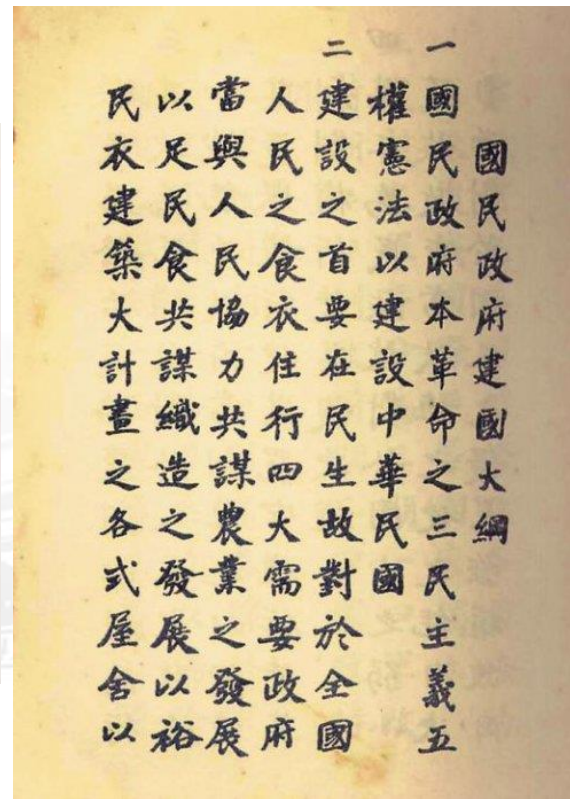 國民政府建國大綱
一 國民政府本革命之三民主義五
權憲法以建設中華民國
二 建設之首要在民生故對於全國
人民之食衣住行四大需要政府
當與人民協力共謀農業之發展
以足民食共謀織造之發展以裕
民衣建築大計畫之各式屋舍以